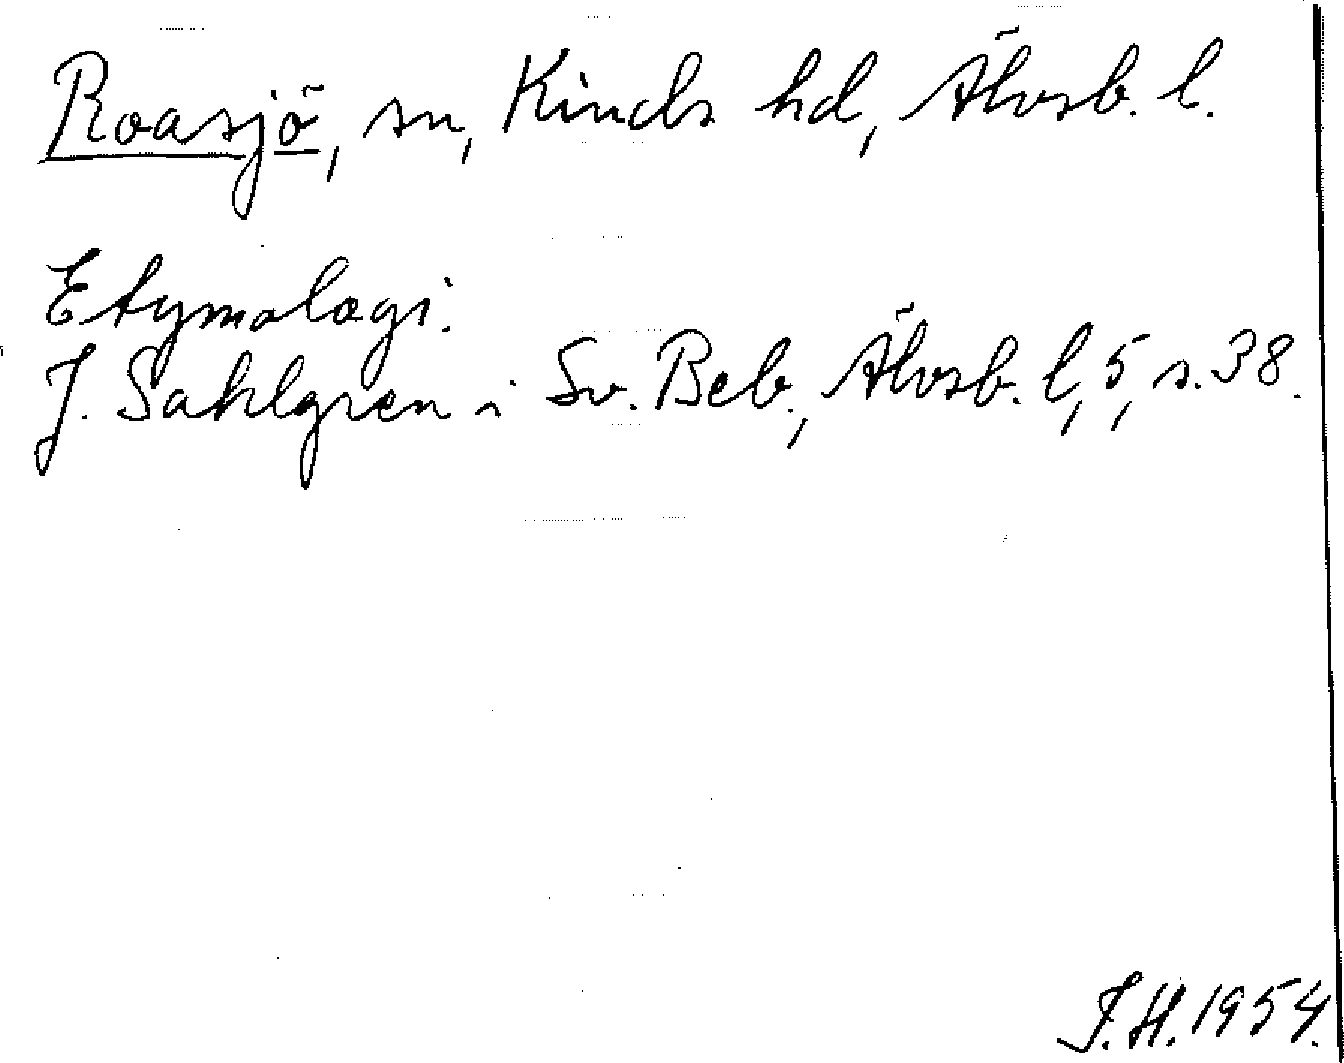 Roasjö, sn, Kinds hd, Älvsb. l.
Etymologi.
J. Sahlgren i Sv. Beb., Älvsb. l, 5, s. 38.
J.H. 1954.